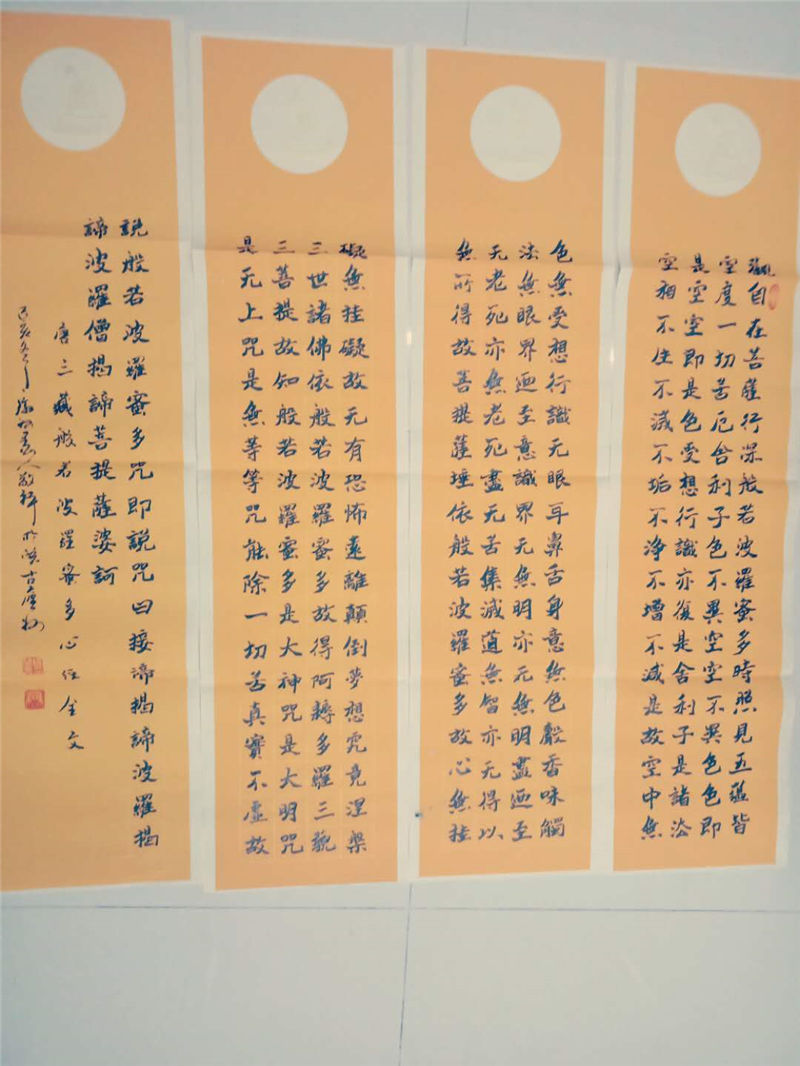 觀自在菩薩行深般若波羅蜜多時照見五蘊皆
空度一切苦厄舍利子色不異空空不異色色即
是空空即是色受想行識亦復是舍利子是諸法
空相不生不滅不垢不淨不增不減是故空中無
色無受想行識无眼耳鼻舌身意無色聲香味觸
法無眼界迺至意識界无無明亦无無明盡迺至
无老死亦無老死盡无苦集滅道無智亦无得以
無所得故菩提薩埵依般若波羅蜜多故心無挂
礙無挂礙故无有恐怖遠離顛倒夢想究竟涅槃
三世諸佛依般若波羅蜜多故得阿耨多羅三藐
三菩提故知般若波羅蜜多是大神咒是大明咒
是无上咒是無等等咒能除一切苦真實不虛故
說般若波羅蜜多咒即說咒曰揭諦揭諦波羅揭
諦波羅僧揭諦菩提薩婆訶
唐三藏般若波羅蜜多心經全文
己亥